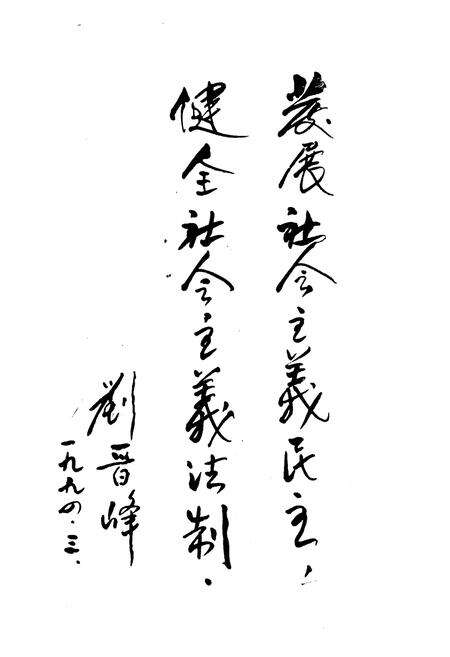 發展社会主義民主，
健全社会主義法制．
劉晋峰
一九九四．三．